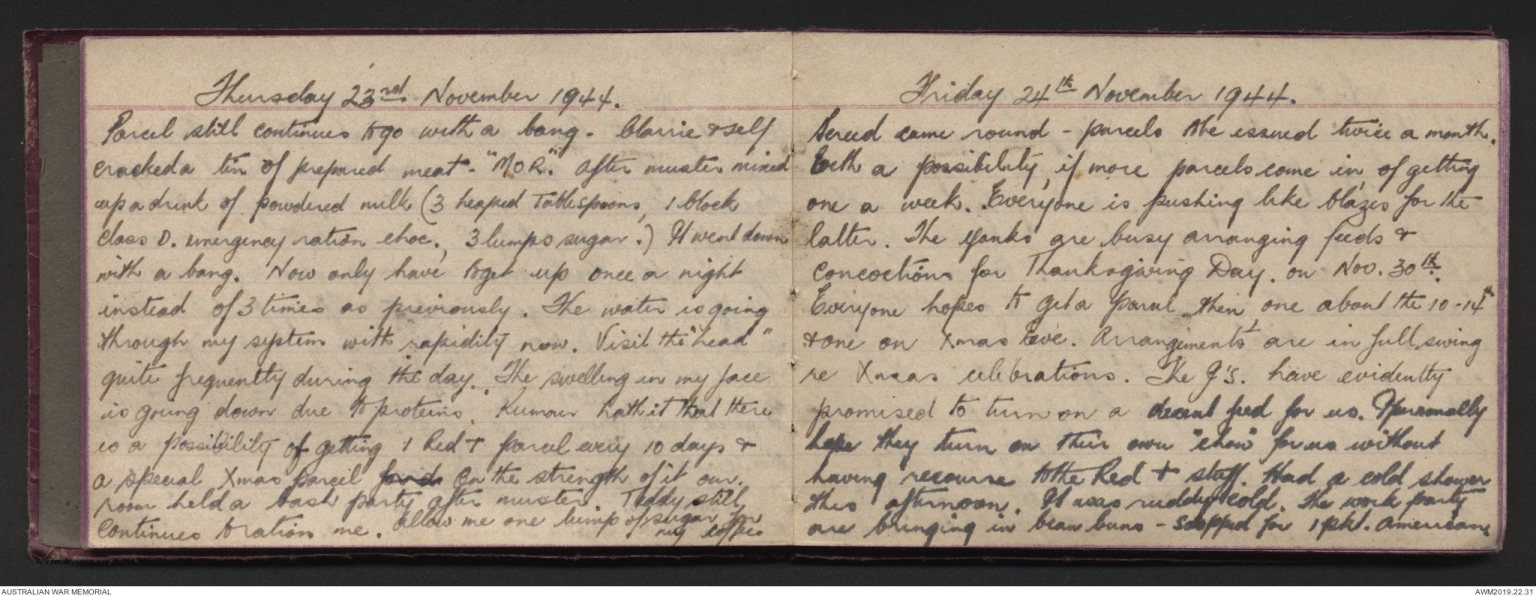 Thursday 23rd November 1944.
Parcel still continues to go with a bang. Clarrie & self
cracked a tin of prepared meat - "MOR". After muster mixed
up a drink of powdered milk (3 heaped tablespoons, 1 block
class D. emergency ration choc, 3 lumps sugar.) It went down
with a bang. Now only have to get up once a night
instead of 3 times as previously. The water is going
through my system with rapidity now. Visit the "head"
quite frequently during the day. The swelling in my face
is going down due to proteins. Rumour hath it that there
is a possibility of getting 1 Red + parcel every 10 days &
a special Xmas parcel On the strength of it our
room held a bash party after muster. Teddy still
continues to ration me. Allow me one lump of sugar for
my coffee
Friday 24th November 1944.
came round - parcels to be issued twice a month.
With a possibility, if more parcels come in, of getting
one a week. Everyone is pushing like blazes for the
latter. The Yanks are busy arranging feeds &
concoctions for Thanksgiving Day. on Nov. 30th.
Everyone hopes to get a parcel then, one about the 10-14th
& one on Xmas Eve. Arrangements are in full swing
re Xmas celebrations. The J's. have evidently
promised to turn on a decent feed for us. I personally
hope they turn on their own "chow" for us without
having recourse to the Red + stuff. Had a cold shower
this afternoon. It was ruddy cold. The work party
are bringing in bean buns - swapped for 1 pkt. American
AUSTRALIAN WAR MEMORIAL
AWM2019.22.31